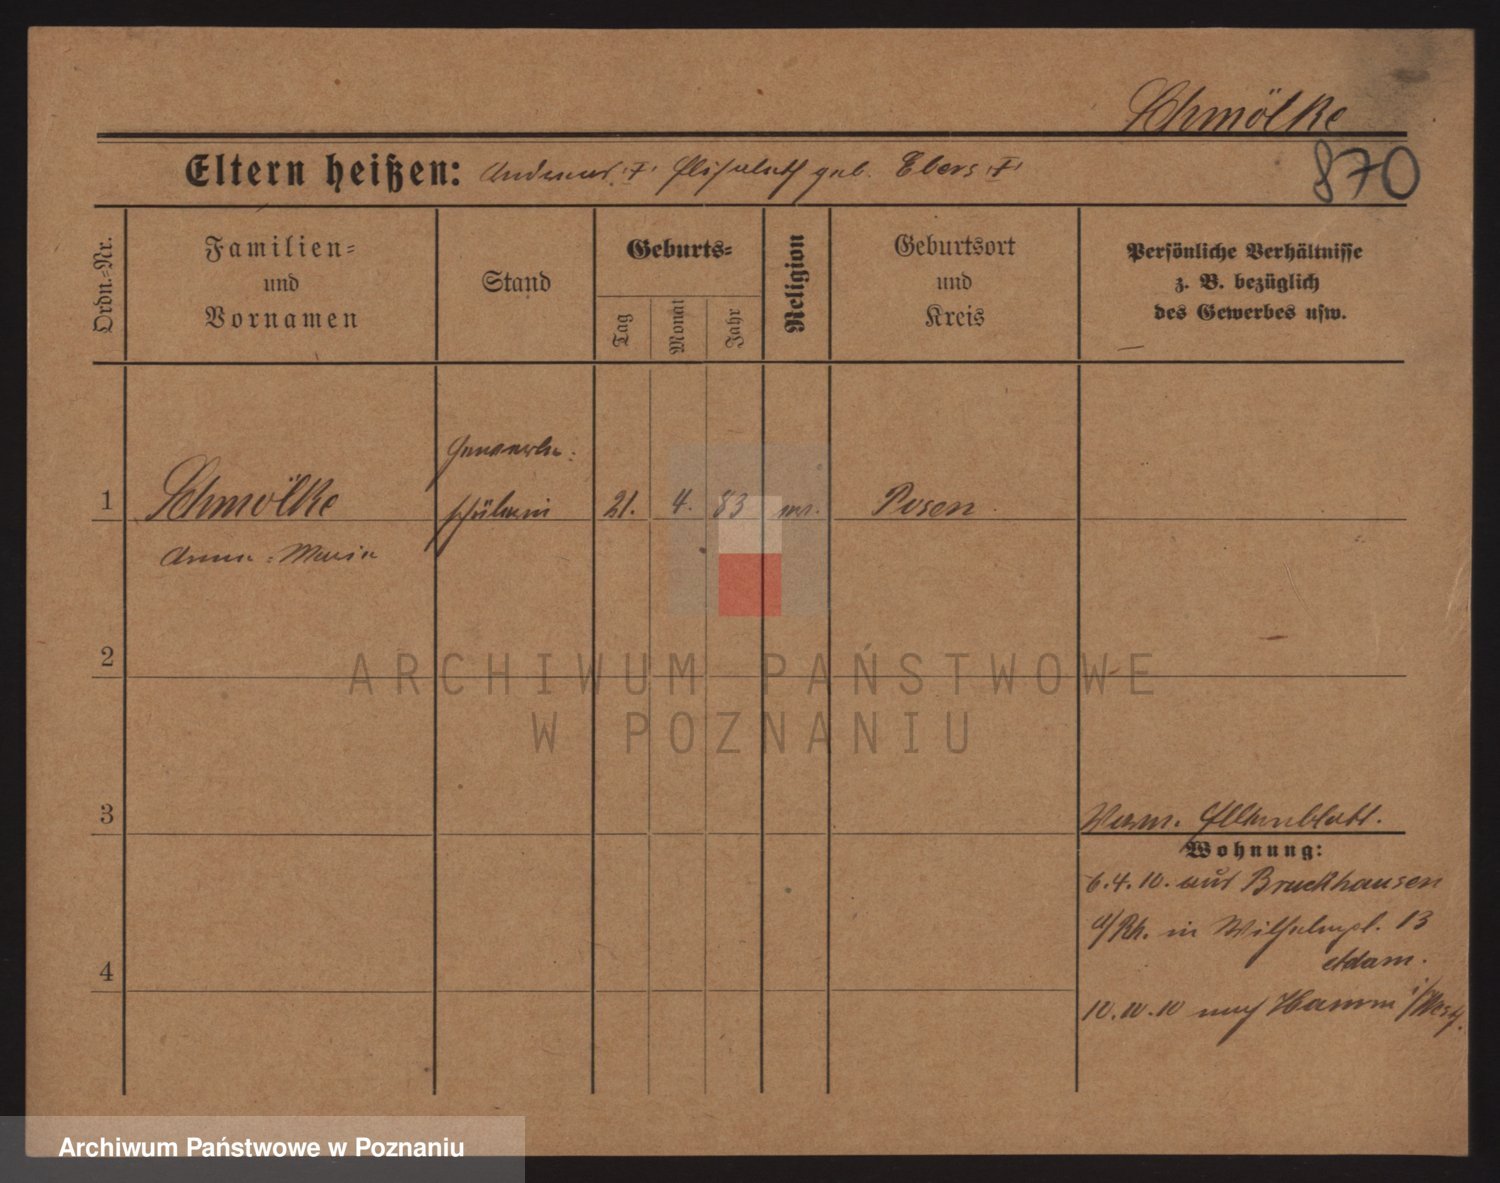 Schmölke
870
Eltern heißen: Andreas † Elisabeth geb. Ebers †
Ordn.-Nr.
Familien-
und
Vornamen
Stand
Geburts-
Tag
Monat
Jahr
Religion
Geburtsort
und
Kreis
Persönliche Verhältnisse
z. B. bezüglich
des Gewerbes usw.
Gewerbe-
1 Schmölke schülerin 21. 4. 83 Posen
Anna-Maria
2
ARCHIWUM PAŃSTWOWE
W POZNANIU
3
Elternblatt.
Wohnung:
6.4.10. aus Bruckhausen
a/Rh. in Wilhelmpl. 13
Adam.
4
10.10.10 nach Hamm i/Westf.
Archiwum Państwowe w Poznaniu